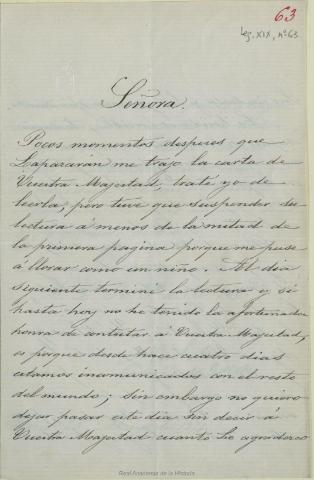 63
Leg. XIX, nº 63
Señora.
Pocos momentos despues que
Lapazarán me trajo la carta de
Vuestra Majestad, traté yo de
leerla, pero tuve que suspender su
lectura á menos de la mitad de
la primera pagina porque me puse
á llorar como un niño. Al dia
siguiente terminé la lectura y si
hasta hoy no he tenido la afortunada
honra de contestar á Vuestra Majestad,
es porque desde hace cuatro dias
estamos incomunicados con el resto
del mundo; sin embargo no quiero
dejar pasar este dia sin decir á
Vuestra Majestad cuanto le agradezco
Real Academia de la Historia